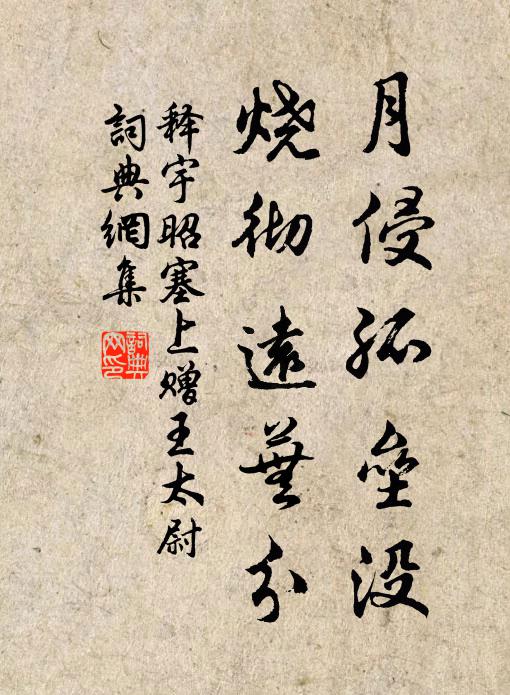 月侵孤垒没
烧彻远芜分
释宇昭塞上赠王太尉
詞典網集
詞典網印